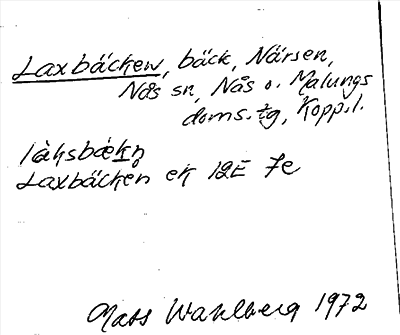 Laxbäcken, bäck, Närsen,
Nås sn, Nås o. Malungs
doms. tg, Kopp.l.
làksbækn̥
Laxbäcken ek 12E 7e
Mats Wahlberg 1972